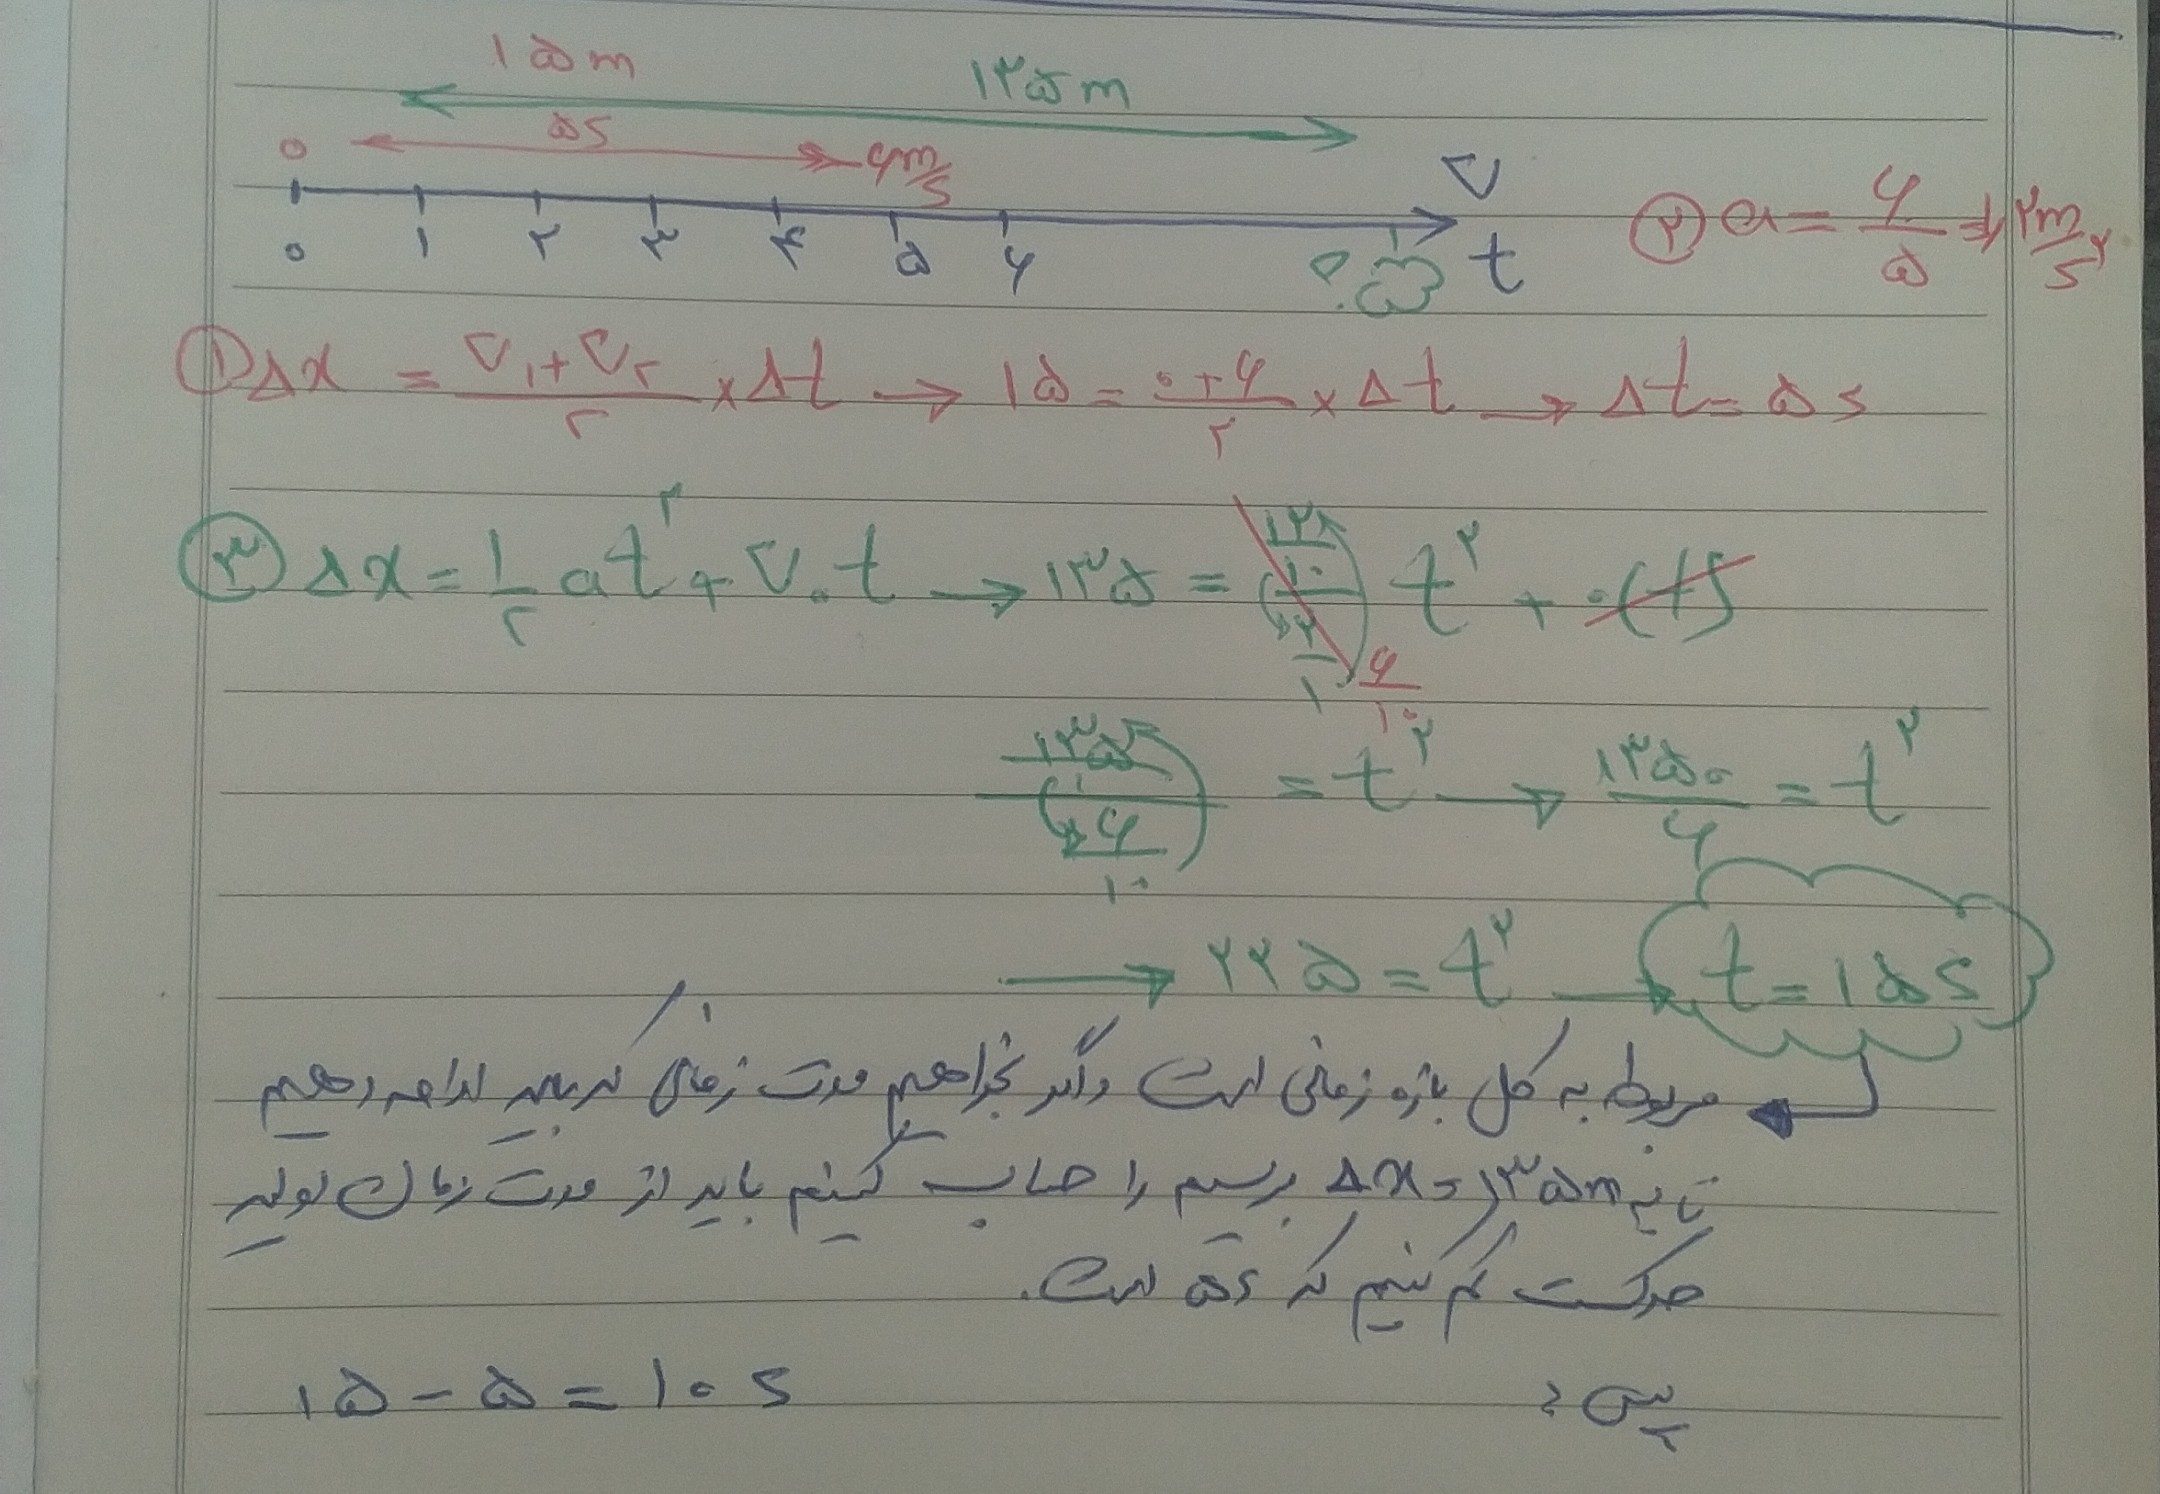 ۱۵m ۱۳۵m
۰ ۵s ۶m/s v
۰ ۱ ۲ ۳ ۴ ۵ ۶ ؟ t
② a = ۶/۵ = ۱/۲ m/s²
① Δx = (v₁+v₂)/۲ × Δt → ۱۵ = (۰+۶)/۲ × Δt → Δt = ۵s
③ Δx = ۱/۲ at² + v₀t → ۱۳۵ = (۱۲/۱۰)/(۲/۱) ۶/۱۰ t² + ۰(t)
(۱۳۵/۱)/(۶/۱۰) = t² → ۱۳۵۰/۶ = t²
→ ۲۲۵ = t² → t = ۱۵s
مربوط به کل بازه زمانی است و اگر بخواهیم مدت زمانی که باید ادامه دهیم
تا به Δx = ۱۳۵m برسیم را حساب کنیم باید از مدت زمان اولیه
حرکت کم کنیم که ۵s است.
پس: ۱۵ - ۵ = ۱۰s